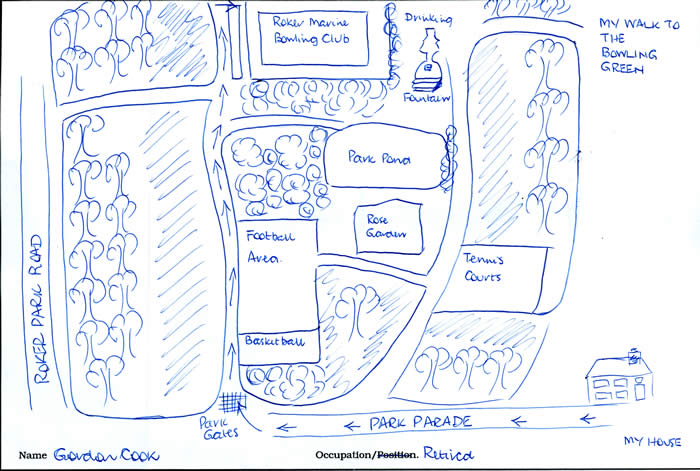 MY WALK TO
THE
BOWLING
GREEN
Roker Marine
Bowling Club
Drinking
Fountain
Park Pond
Rose
Garden
Football
Area.
Tennis
Courts
Basketball
ROKER PARK ROAD
Park
Gates
PARK PARADE
MY HOUSE
Name Gordon Cook
Occupation/Position. Retired